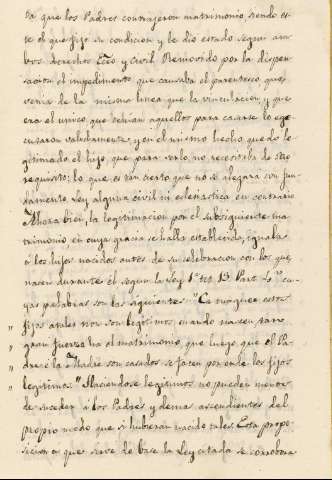 da que los Padres contrajeron matrimonio, siendo es-
te el que fijo su condicion y le dio estado segun am-
bos derechos Ecco y Civil. Removido por la dispen-
sacion el impedimento que causaba el parentesco que
venia de la misma linea que la vinculacion, y que
era el unico que tenian aquellos para casarse lo ege-
cutaron validamente, y en el mismo hecho quedo le-
gitimado el hijo, que para serlo no necesitaba de otro
requisito: lo que es tan cierto que no se alegará con jun-
damente Ley alguna civil ni eclesiastica en contrario
Ahora bien, la legitimacion por el subsiguiente ma-
trimonio en cuya gracia se halla establecida, iguala
á los hijos nacidos antes de su celebracion con los que
nacen durante él segun la Ley 1ª tit. 13 Part. 4ª cu-
yas palabras son las siguientes: "Ca maguer estos
" fijos atales non son legitimos cuando nascen, tan
" gran fuerza ha el matrimonio que luego que el Pa-
" dre é la Madre son casados se facen por ende los fijos
" legitimos." Haciendose legitimos no pueden menos
de suceder á los Padres y demas ascendientes del
propio modo que si hubieran nacido tales. Esta propo-
sicion a que sirve de base la Ley citada se corrobora